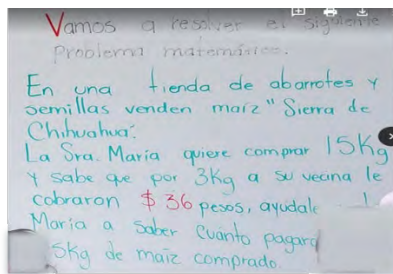 Vamos a resolver el siguiente
problema matemático.
En una tienda de abarrotes y
semillas venden maíz "Sierra de
Chihuahua".
La Sra. María quiere comprar 15Kg
y sabe que por 3Kg a su vecina le
cobraron $ 36 pesos, ayudale
María a saber cuanto pagara
5Kg de maíz comprado.